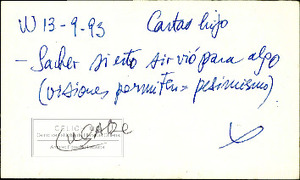 W 13-9-93 Cartas hijo
- Sacher si esto sirvió para algo
(visiones permiten = pesimismo)
CELIC